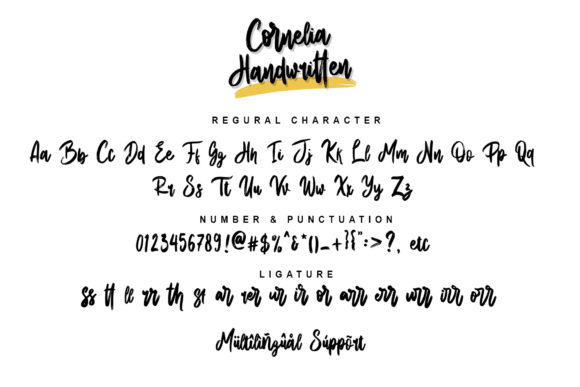 Cornelia
Handwritten
REGURAL CHARACTER
Aa Bb Cc Dd Ee Ff Gg Hh Ii Jj Kk Ll Mm Nn Oo Pp Qq
Rr Ss Tt Uu Vv Ww Xx Yy Zz
NUMBER & PUNCTUATION
0123456789!@#$%^&*()_+}{":>?, etc
LIGATURE
ss tt ll rr th st ar er ur ir or arr err urr irr orr
Mültîlîñgûål Súppõrt